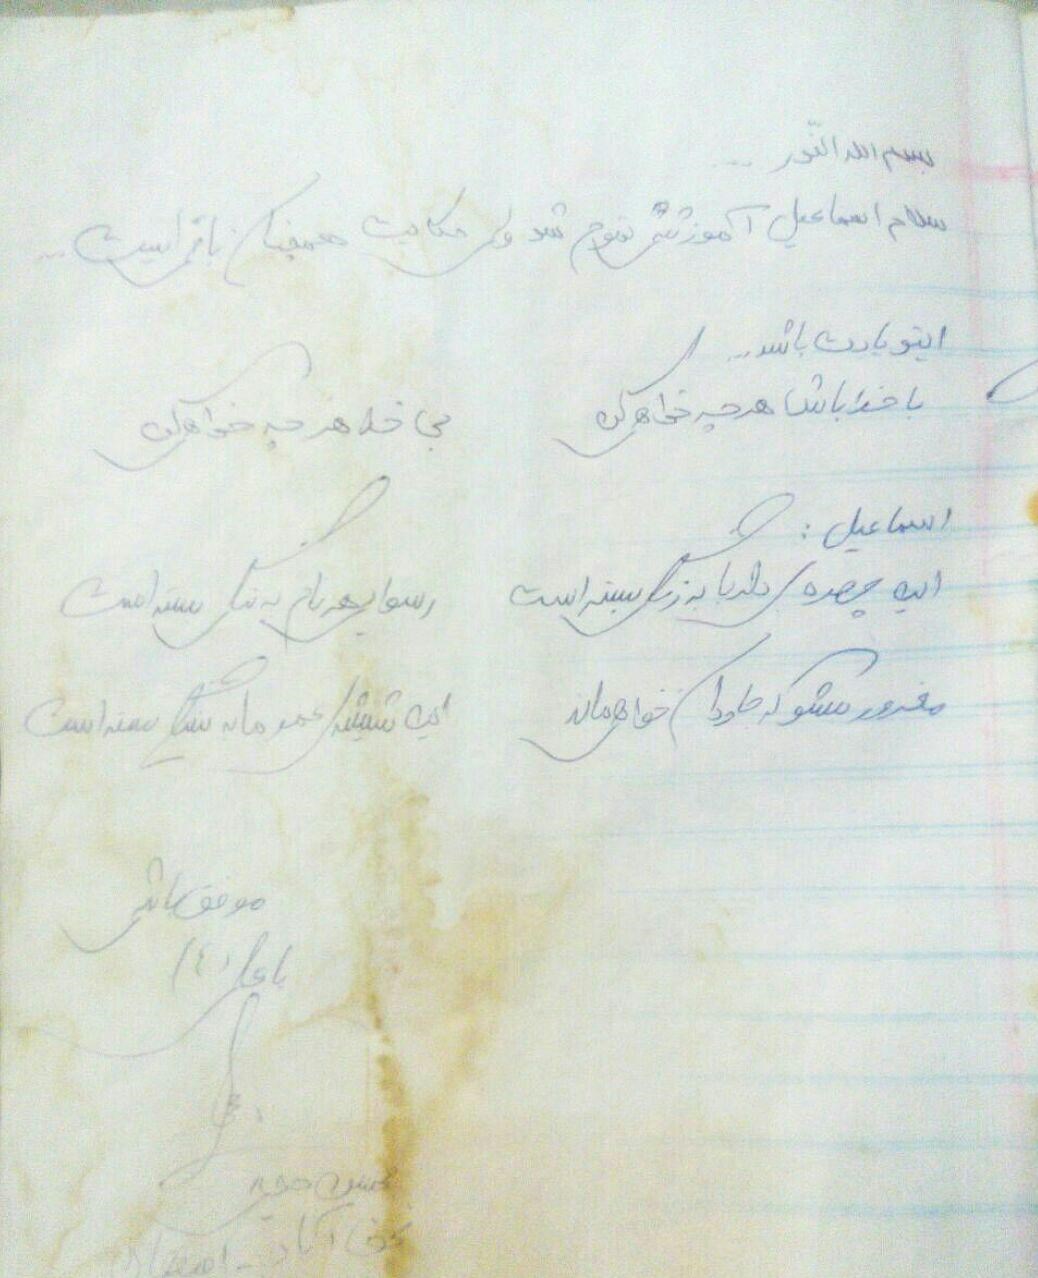 بسم الله النّور ...
سلام اسماعیل آموزشی تموم شد ولی حکایت همچنان باقی است ...
اینو یادت باشد ...
با خدا باش هر چه خواهی کن بی خدا هر چه خواهی کن
اسماعیل :
این چهره ی دلربا به زنگی بسته است رسوایی هر نام به ننگی بسته است
مغرور مشو که جاودان خواهی ماند این شیشه ی عمر ما به سنگی بسته است
موفق باشی
یا علی (ع)
محسن
نجف آباد - اصفهان